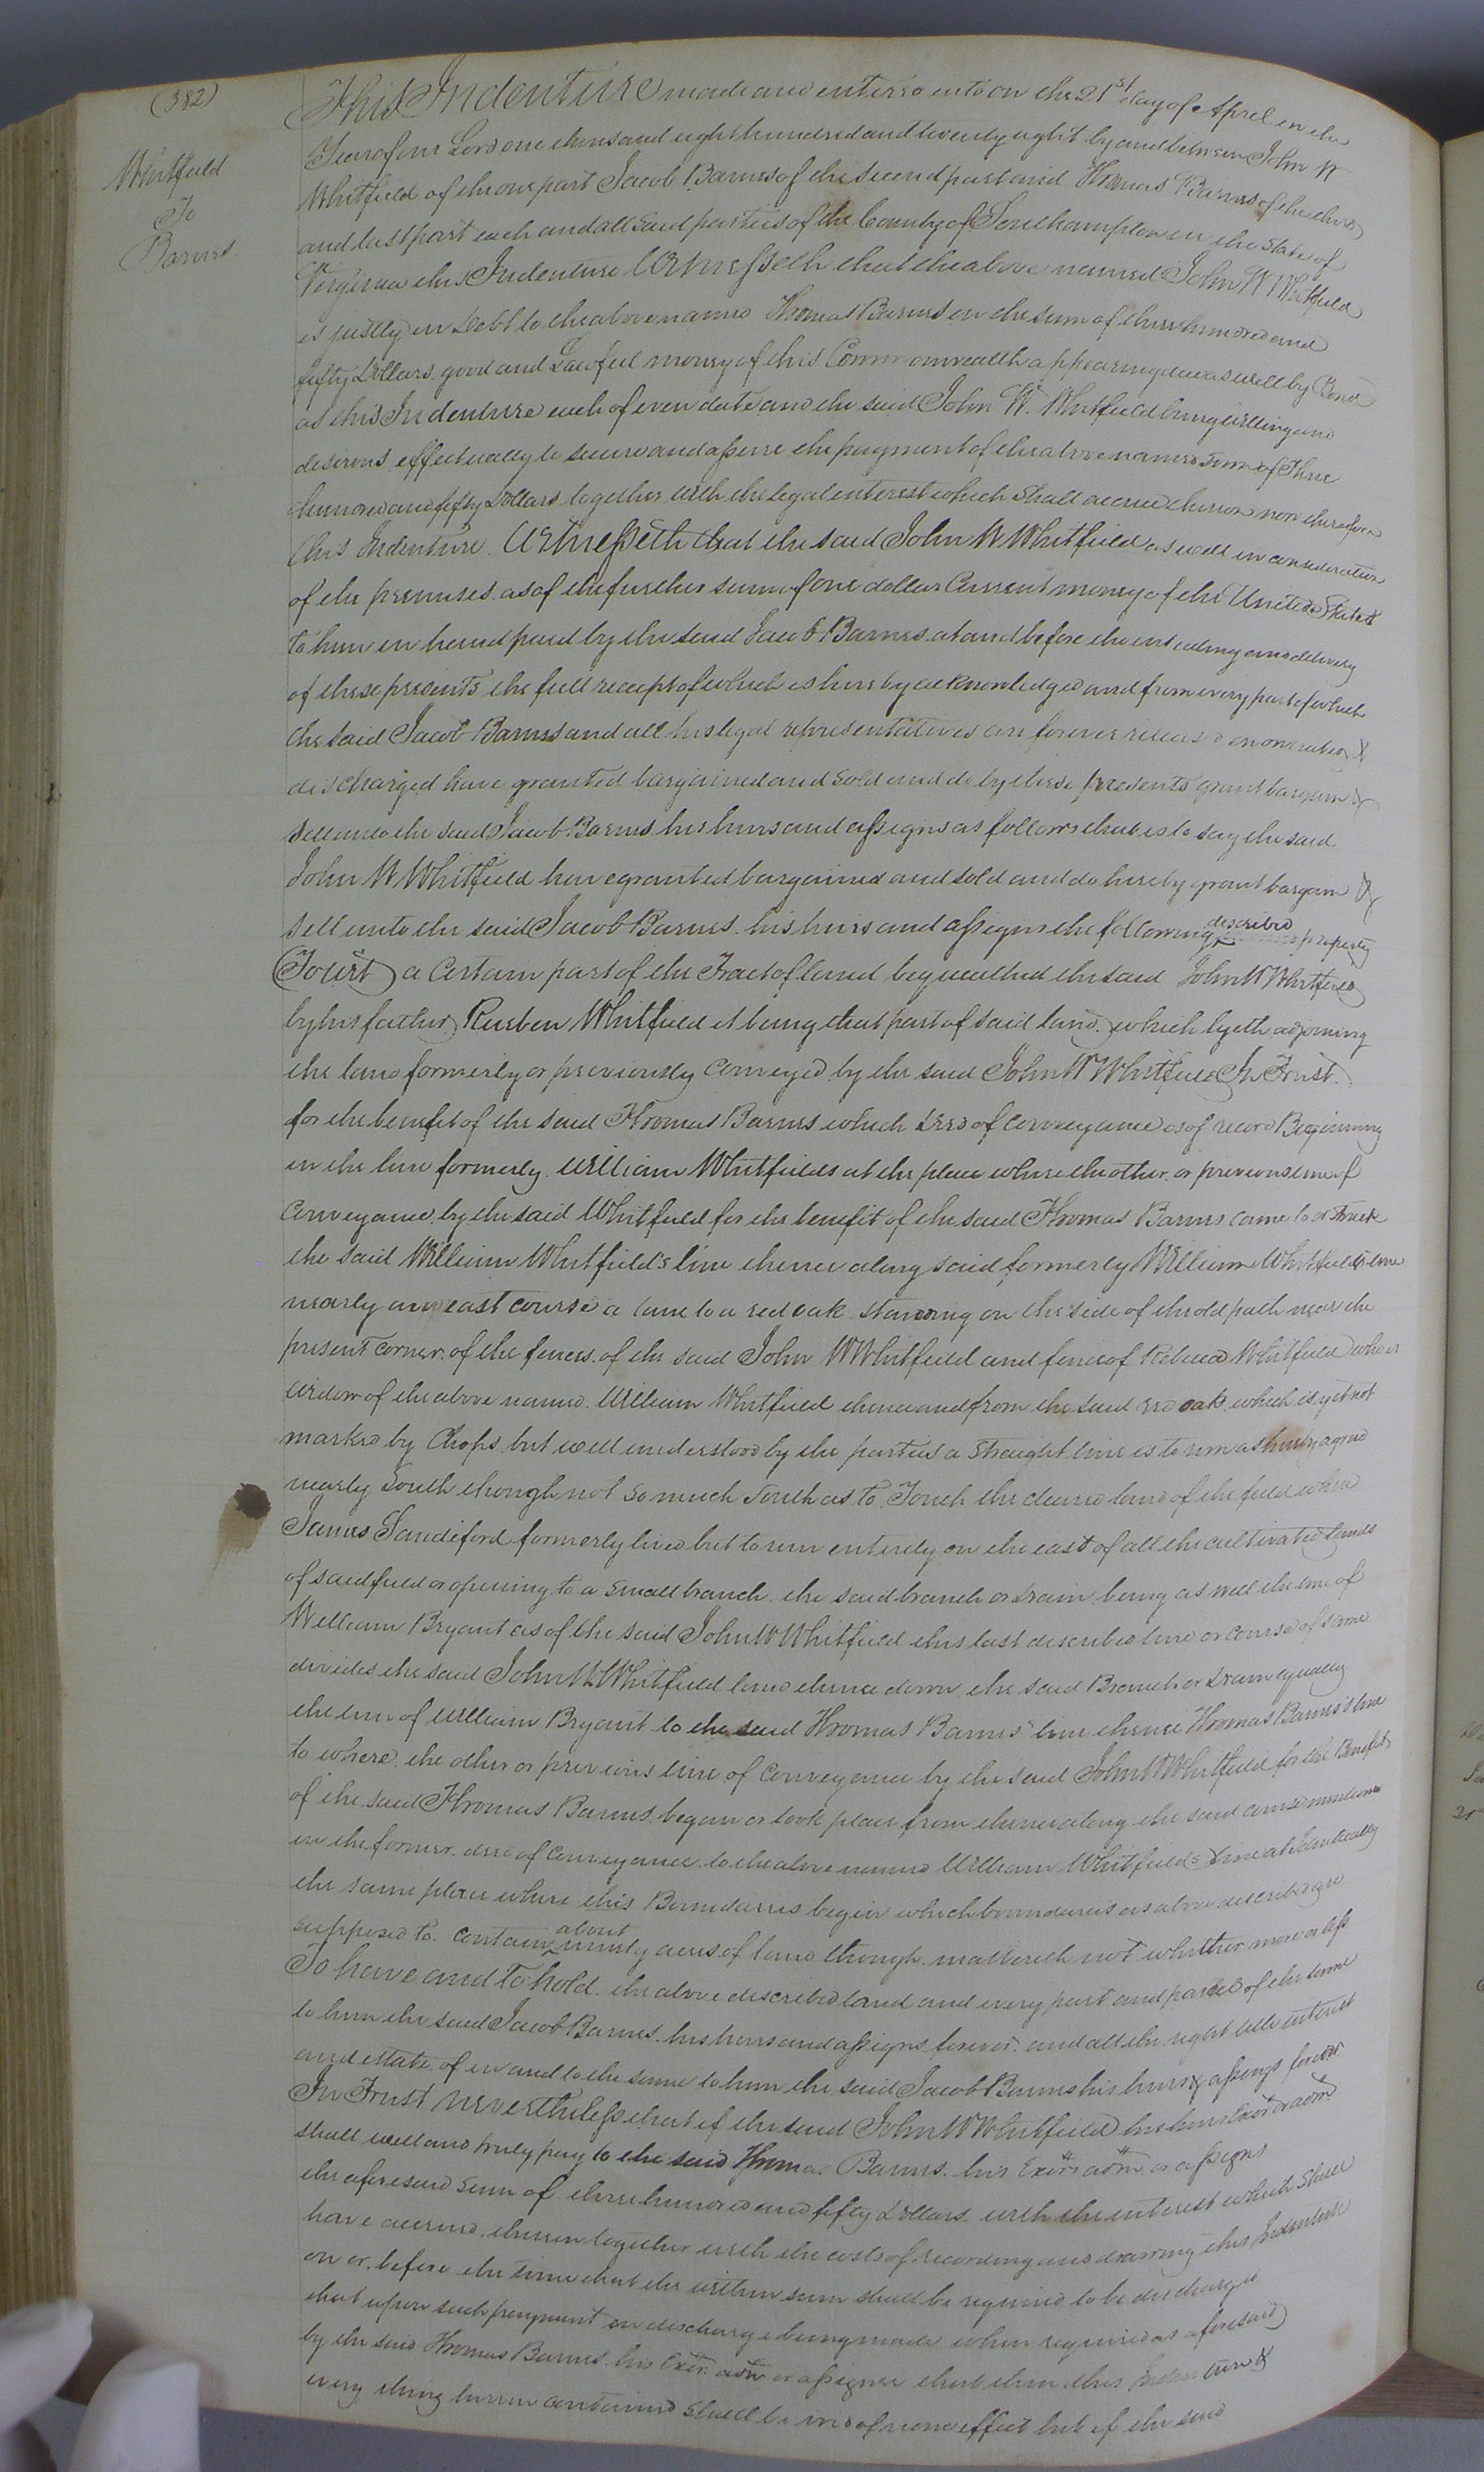 (382)
Whitfield
To
Barnes
This Indenture made and entered into on the 21st day of April in the
Year of our Lord one thousand eight hundred and twenty eight by and between John W
Whitfield of the one part Jacob Barnes of the second part and Thomas Barnes of the third
and last part each and all said parties of the County of Southampton in the State of
Virginia this Indenture Witnesseth that the above named John W Whitfield
is justly in debt to the above named Thomas Barnes in the sum of three hundred and
fifty Dollars good and Lawful money of this Commonwealth appearing due as well by Bond
as this Indenture each of even date and the said John W. Whitfield being willing and
desirous effectually to secure and assure the payment of the above named sum of Three
hundred and fifty Dollars together with the legal interest which shall accrue thereon now therefore
this Indenture Witnesseth that the said John W Whitfield as well in consideration
of the premises as of the further sum of one dollar Current money of the United States
to him in hand paid by the said Jacob Barnes at and before the ensealing and delivery
of these presents the full receipt of which is hereby acknowledged and from every part of which
the said Jacob Barnes and all his legal representatives are forever released exonerated &
discharged have granted bargained and sold and do by these presents grant bargain &
sell unto the said Jacob Barnes his heirs and assigns as follows that is to say the said
John W Whitfield have granted bargained and sold and do hereby grant bargain &
sell unto the said Jacob Barnes his heirs and assigns the following described property
(Towit) a Certain part of the Tract of land bequeathed the said John W Whitfield
by his father Reuben Whitfield it being that part of said land which lyeth adjoining
the land formerly or previously Conveyed by the said John W Whitfield In Trust
for the benefit of the said Thomas Barnes which deed of Conveyance is of record Beginning
in the line formerly William Whitfields at the place where the other or previous line of
Conveyance by the said Whitfield for the benefit of the said Thomas Barnes came to or struck
the said William Whitfield's line thence along said formerly William Whitfield's line
nearly an east course a line to a red oak standing on the side of the old path near the
present corner of the fences of the said John W Whitfield and fence of Rebecca Whitfield who is
widow of the above named William Whitfield thence and from the said red oak which is yet not
marked by Chops but well understood by the parties a straight line is to run as hereby agreed
nearly South though not so much South as to Touch the cleared land of the field where
James Sandiford formerly lived but to run entirely on the east of all the cultivated lands
of said field or opening to a small branch the said branch or drain being as well the line of
William Bryant as of the said John W Whitfield this last described line or course of same
divides the said John W Whitfield land thence down the said Branch or drain equally
the line of William Bryant to the said Thomas Barnes' line thence Thomas Barnes's line
to where the other or previous line of Conveyance by the said John W Whitfield for the Benefit
of the said Thomas Barnes began or took place from thence along the said course mentioned
in the former deed of Conveyance to the above named William Whitfield's line at identically
the same place where this Boundaries begin which boundaries as above described are
supposed to contain about ninety acres of land though mattereth not whether more or less
To have and To hold the above described land and every part and parcel of the same
to him the said Jacob Barnes his heirs and assigns forever and all the right title interest
and estate of in and to the same to him the said Jacob Barnes his heirs & assigns forever
In Trust nevertheless that if the said John W Whitfield his heirs Exor or adm
shall well and truly pay to the said Thomas Barnes his Exors adm or assigns
the aforesaid sum of three hundred and fifty Dollars with the interest which shall
have accrued thereon together with the costs of recording and drawing this Indenture
on or before the time that the within sum shall be required to be discharged
that upon such payment or discharge being made when required as aforesaid
by the said Thomas Barnes his Exor adm or assignee that then this Indenture &
every thing herein contained shall be void of none effect but if the said